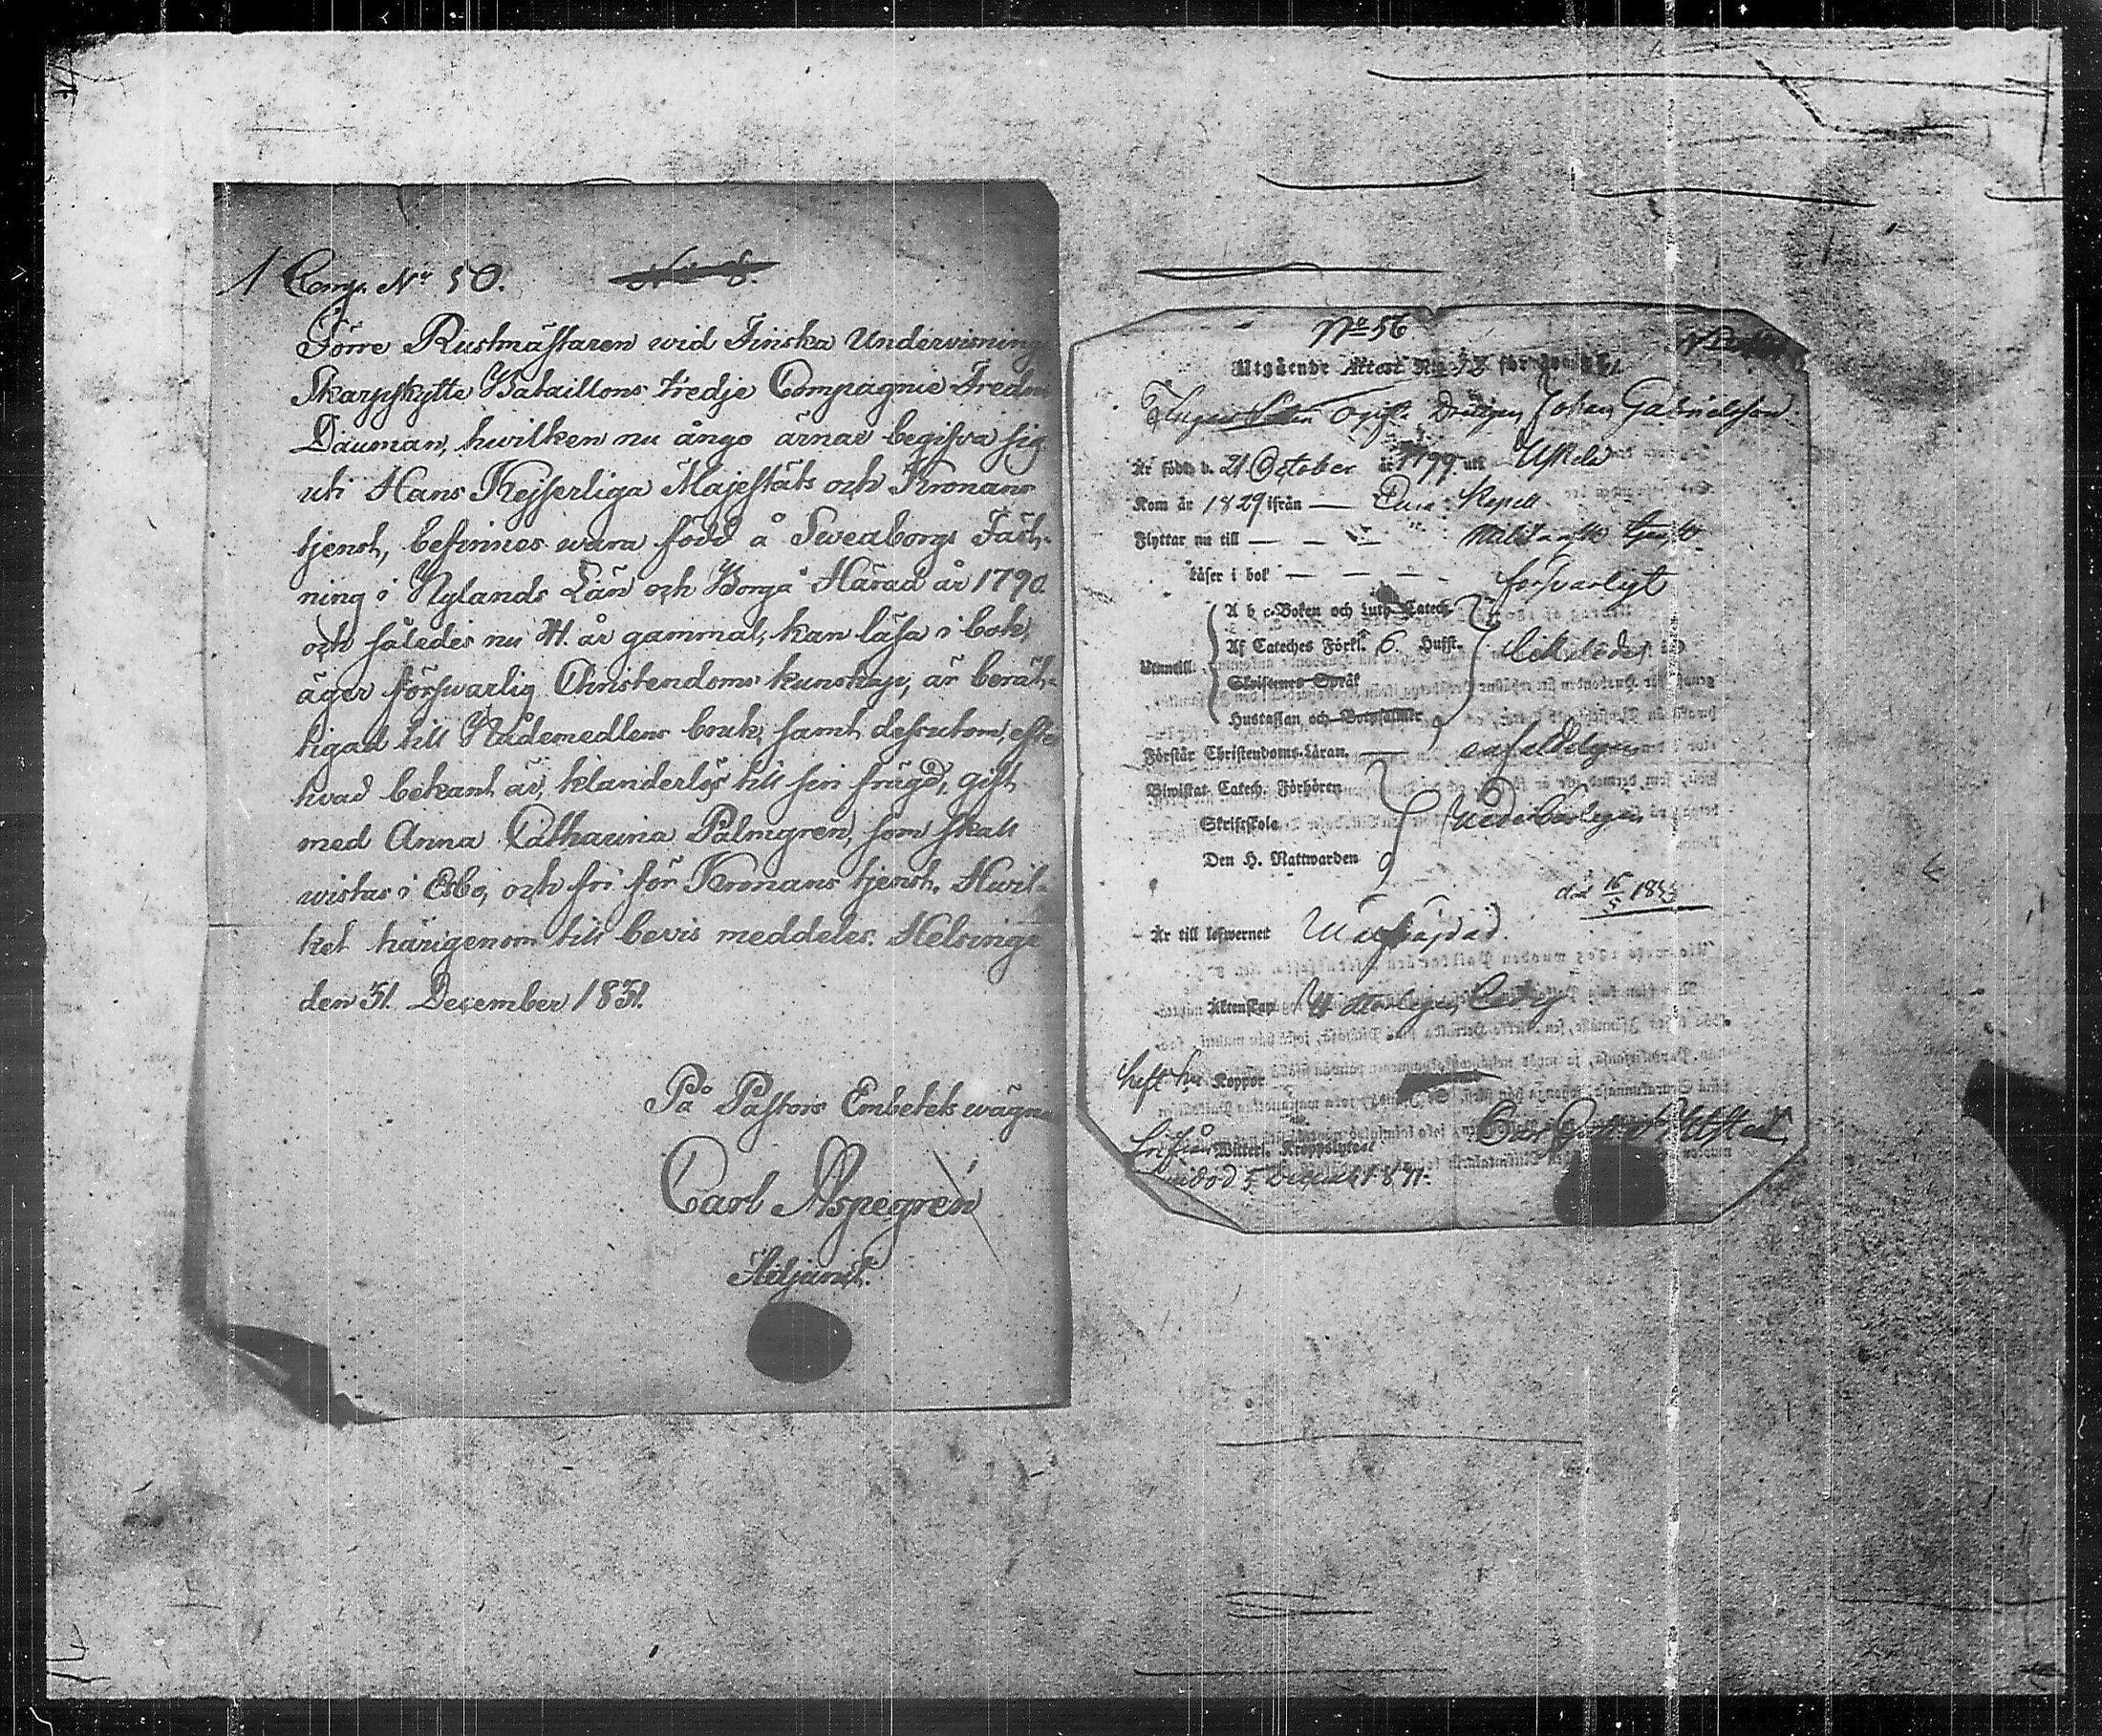 1 Comp. No 50.
Förre Rustmästaren wid Finska Undervisnings
Skarpskytte Bataillons tredje Compagnie Fredric
Dauman, hwilken nu ånyo ärnar begifva sig
uti Hans Kejserliga Majestäts och Kronans
tjenst, befinnes wara född å Sweaborgs Fäst-
ning i Nylands Län och Borgå Härad år 1790.
och således nu 41. år gammal; kan läsa i bok,
äger försvarlig Christendoms kunskap, är berät-
tigad till Nådemedlens bruk, samt dessutom, efter
hvad bekant är, klanderlös till sin frägd, gift
med Anna Catharina Palmgren, som skall
wistas i Esbo, och fri för Kronans tjenst. Hwil-
ket härigenom till bevis meddeles. Helsinge
den 31. December 1831.
På Pastors Embetets wägnar
Carl Aspegrén
Adjunct.
No 56
Utgående Attest No för
Drängen Johan Gabrielsson
Är född d. 21 October år 1799 uti Uskela
Kom år 1829 ifrån —
Flyttar nu till — — — Militairtjenst
Läser i bok — — — försvarligt
A b c-Boken och Luth. Catech.
Af Cateches Förkl. 6. Hufst.
Utantill
Skriftenes Språk
Hustaflan och Botpsalmer
Förstår Christendoms-Läran — enfaldeligen
Biwistat Catech. Förhören
Skriftskola
Den H. Nattwarden
Är till lefwernet
Äktenskap
haft Koppor
Carl Gustaf